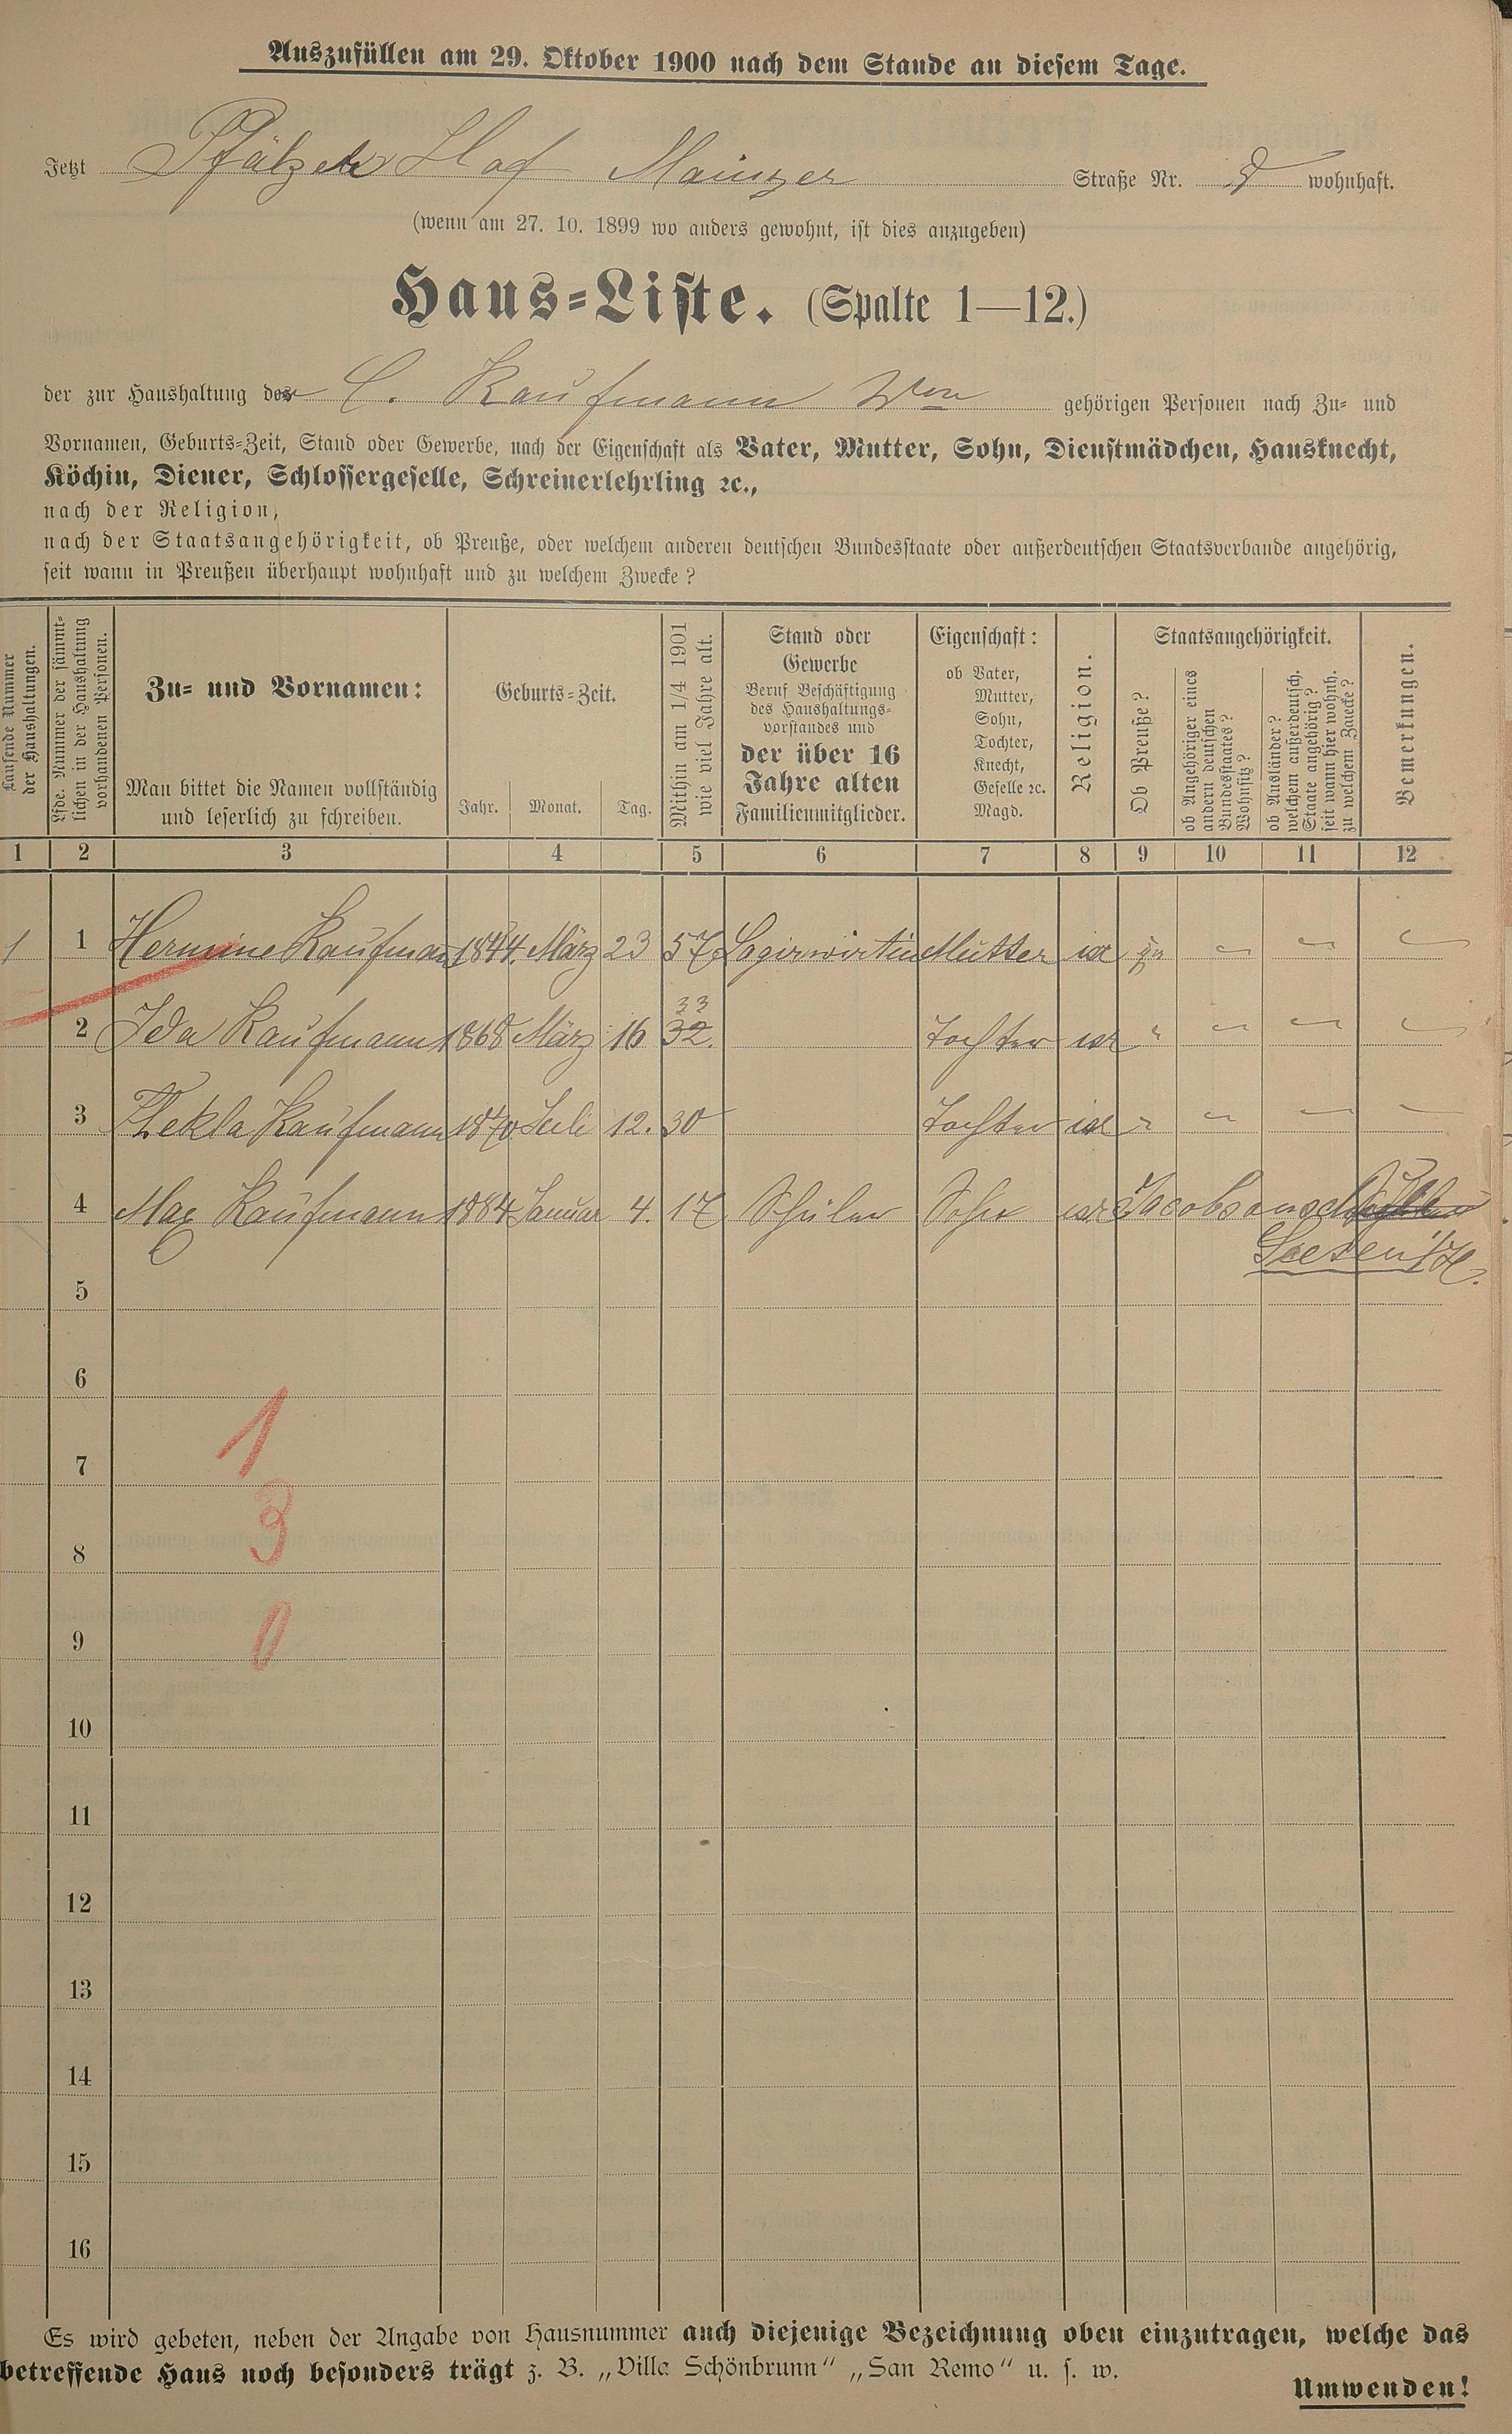 Auszufüllen am 29. Oktober 1900 nach dem Stande an diesem Tage.
Jetzt Pfälzer Hof Mainzer Straße Nr. 8 wohnhaft.
(wenn am 27. 10. 1899 wo anders gewohnt, ist dies anzugeben)
Haus-Liste. (Spalte 1—12.)
der zur Haushaltung der C. Kaufmann Wwe gehörigen Personen nach Zu- und
Vornamen, Geburts-Zeit, Stand oder Gewerbe, nach der Eigenschaft als Vater, Mutter, Sohn, Dienstmädchen, Hausknecht,
Köchin, Diener, Schlossergeselle, Schreinerlehrling ꝛc.,
nach der Religion,
nach der Staatsangehörigkeit, ob Preuße, oder welchem anderen deutschen Bundesstaate oder außerdeutschen Staatsverbande angehörig,
seit wann in Preußen überhaupt wohnhaft und zu welchem Zwecke?
Laufende Nummer
der Haushaltungen.
Lfde. Nummer der sämmt-
lichen in der Haushaltung
vorhandenen Personen.
Zu- und Vornamen:
Man bittet die Namen vollständig
und leserlich zu schreiben.
Geburts-Zeit.
Jahr. Monat. Tag.
Mithin am 1/4 1901
wie viel Jahre alt.
Stand oder
Gewerbe
Beruf Beschäftigung
des Haushaltungs-
vorstandes und
der über 16
Jahre alten
Familienmitglieder.
Eigenschaft:
ob Vater,
Mutter,
Sohn,
Tochter,
Knecht,
Geselle ꝛc.
Magd.
Religion.
Staatsangehörigkeit.
Ob Preuße?
ob Angehöriger eines
andern deutschen
Bundesstaates?
Wohnsitz?
ob Ausländer?
welchem außerdeutsch.
Staate angehörig?
seit wann hier wohnh.
zu welchem Zwecke?
Bemerkungen.
1 2 3 4 5 6 7 8 9 10 11 12
1 1 Hermine Kaufmann 1844. März 23 57 Logirwirtin Mutter isr ja – – –
2 Ida Kaufmann 1868 März 16 33 32. Tochter isr " – – –
3 Thekla Kaufmann 1870 Juli 12. 30 Tochter isr " – – –
4 Max Kaufmann 1884 Januar 4. 17 Schüler Sohn isr Jacobsonsch
Seesen a/H.
5
6
1
7
3
8
0
9
10
11
12
13
14
15
16
Es wird gebeten, neben der Angabe von Hausnummer auch diejenige Bezeichnung oben einzutragen, welche das
betreffende Haus noch besonders trägt z. B. „Villa Schönbrunn" „San Remo" u. s. w.
Umwenden!